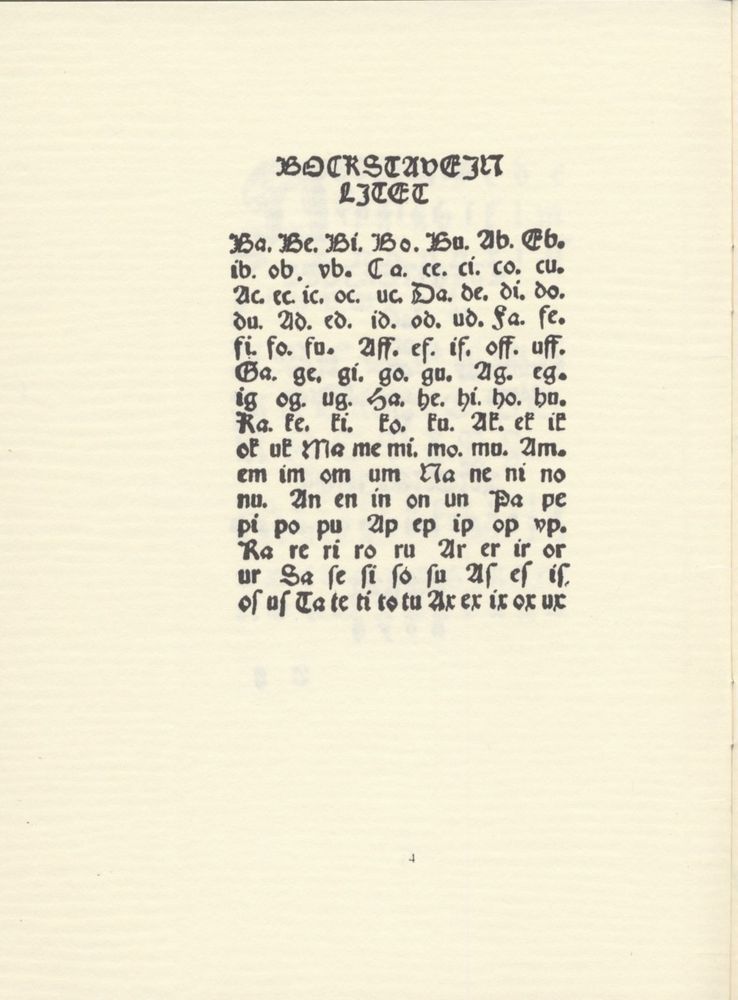 BOCKSTAVEIN
LITET
Ba. Be. Bi. Bo. Bu. Ab. Eb.
ib. ob. vb. Ca. ce. ci. co. cu.
Ac. ec. ic. oc. uc. Da. de. di. do.
du. Ad. ed. id. od. ud. Fa. fe.
fi. fo. fu. Aff. ef. if. off. uff.
Ga. ge. gi. go. gu. Ag. eg.
ig og. ug. Ha. he. hi. ho. hu.
Ka. ke. ki. ko. ku. Ak. ek ik
ok uk Ma me mi. mo. mu. Am.
em im om um Na ne ni no
nu. An en in on un Pa pe
pi po pu Ap ep ip op vp.
Ra re ri ro ru Ar er ir or
ur Sa ſe ſi ſo ſu Aſ eſ iſ.
oſ uſ Ta te ti to tu Ax ex ix ox ux
4